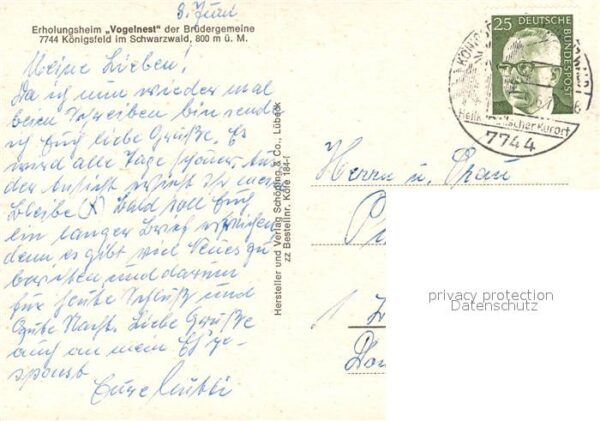 3. Juni
Erholungsheim „Vogelnest" der Brüdergemeine
7744 Königsfeld im Schwarzwald, 800 m ü. M.
Meine Lieben!
Da ich nun wieder mal
beim Schreiben bin sende
ich Euch liebe Grüße. Es
wird alle Tage schöner. An
der Ansicht wird Ihr mein
Bleibe (X) Bald soll Euch
ein langer Brief erreichen
denn es gibt viel Neues zu
berichten und darum
für heute Schluß und
Gute Nacht. Liebe Grüße
auch an mein
Eure Mutti
Hersteller und Verlag Schöning & Co., Lübeck
zz Bestellnr. Köfe 184-f
25 DEUTSCHE
BUNDESPOST
Heilklimatischer Kurort
7744
Herrn u. Frau
privacy protection
Datenschutz